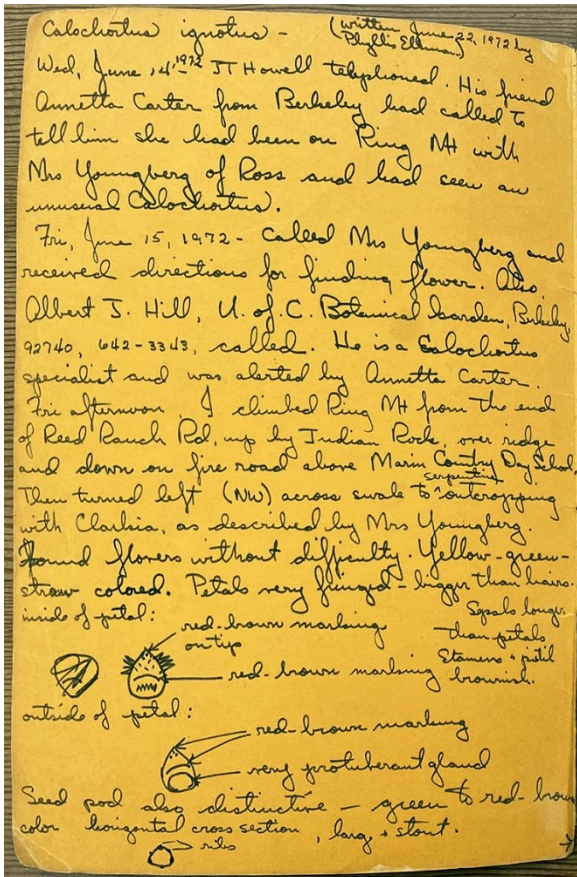 Calochortus ignotus - (written June 22, 1972 by
Phyllis Ellman)
Wed, June 14 - 1972 JT Howell telephoned. His friend
Annetta Carter from Berkeley had called to
tell him she had been on Ring Mt with
Mrs Youngberg of Ross and had seen an
unusual Calochortus.
Fri, June 15, 1972 - called Mrs Youngberg and
received directions for finding flower. Also
Albert J. Hill, U. of C. Botanical Garden, Berkeley,
92740, 642-3343, called. He is a Calochortus
specialist and was alerted by Annetta Carter.
Fri afternoon I climbed Ring Mt from the end
of Reed Ranch Rd, up by Indian Rock, over ridge
and down on fire road above Marin Country Day School.
Then turned left (NW) across swale to serpentine outcropping
with Clarkia, as described by Mrs Youngberg.
Found flowers without difficulty. Yellow-green-
straw colored. Petals very fringed - bigger than hairs.
inside of petal:
red-brown marking
on tip
red-brown marking
Sepals longer
than petals
Stamens + pistil
brownish.
outside of petal:
red-brown marking
very protuberant gland
Seed pod also distinctive - green to red-brown
color horizontal cross section, large + stout.
ribs